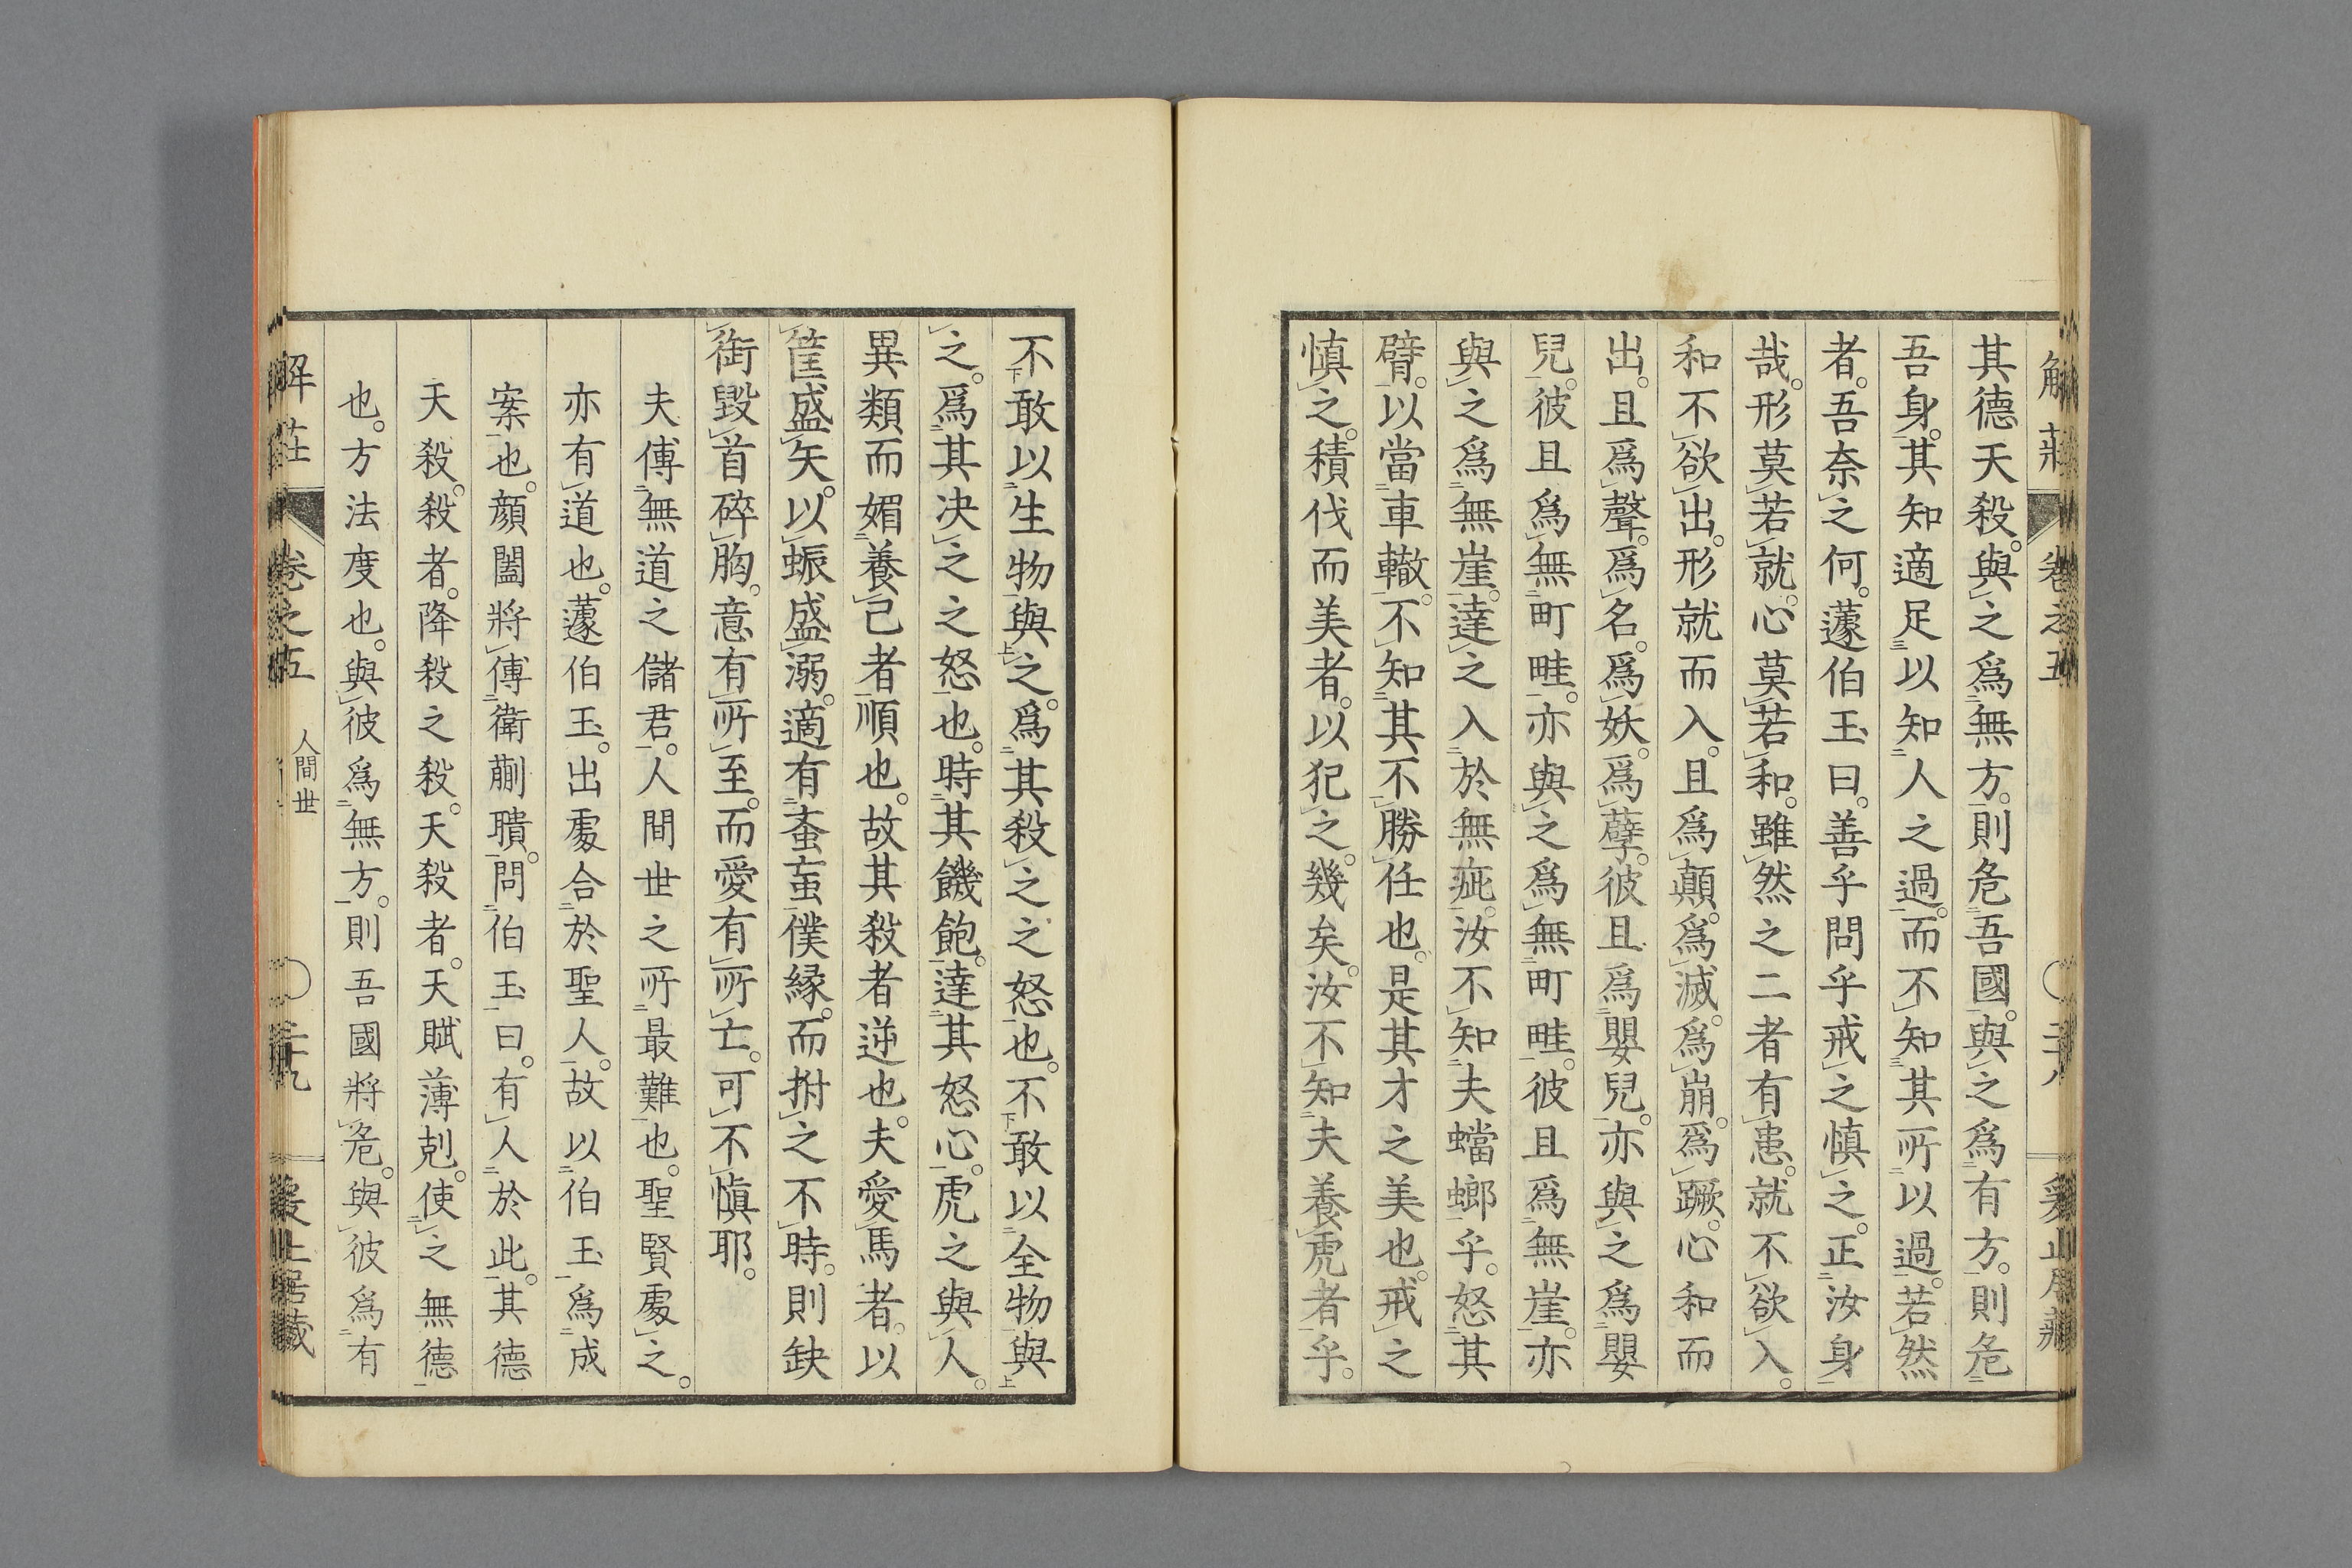 其德天殺。與之爲無方。則危吾國。與之爲有方。則危
吾身。其知適足以知人之過。而不知其所以過。若然
者。吾奈之何。蘧伯玉曰。善乎問乎戒之慎之。正汝身
哉。形莫若就。心莫若和。雖然之二者有患。就不欲入。
和不欲出。形就而入。且爲顛。爲滅。爲崩。爲蹶。心和而
出。且爲聲。爲名。爲妖。爲孽。彼且爲嬰兒。亦與之爲嬰
兒。彼且爲無町畦。亦與之爲無町畦。彼且爲無崖。亦
與之爲無崖。達之入於無疵。汝不知夫螳螂乎。怒其
臂。以當車轍。不知其不勝任也。是其才之美也。戒之
慎之。積伐而美者。以犯之。幾矣。汝不知夫養虎者乎。
不敢以生物與之。爲其殺之之怒也。不敢以全物與
之。爲其決之之怒也。時其饑飽。達其怒心。虎之與人。
異類而媚養己者順也。故其殺者逆也。夫愛馬者。以
筐盛矢。以蜄盛溺。適有蚉䖟僕緣。而拊之不時。則缺
銜毀首碎胸。意有所至。而愛有所亡。可不慎耶。
夫傅無道之儲君。人間世之所最難也。聖賢處之。
亦有道也。蘧伯玉。出處合於聖人。故以伯玉爲成
案也。顏闔將傅衛蒯聵。問伯玉曰。有人於此。其德
天殺。殺者。降殺之殺。天殺者。天賦薄剋。使之無德
也。方法度也。與彼爲無方。則吾國將危。與彼爲有
解莊
卷之五
人間世
二十九